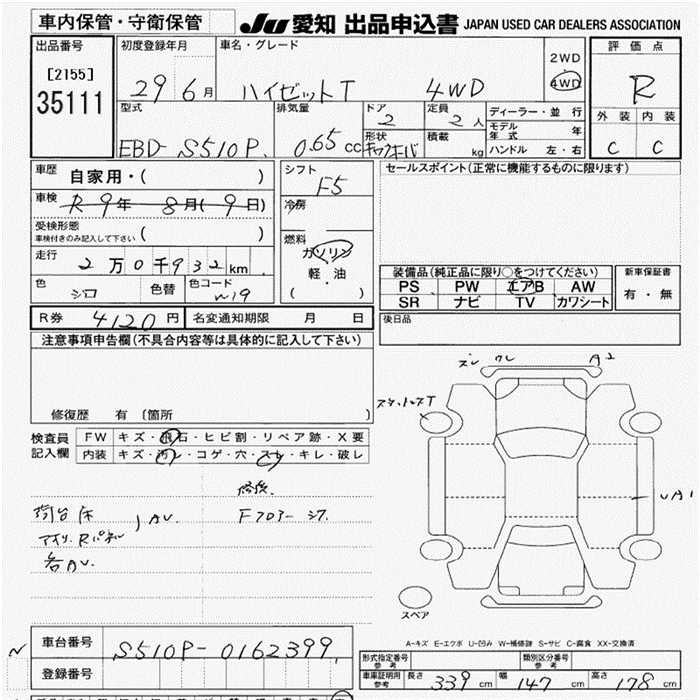 車内保管・守衛保管
JU 愛知 出品申込書 JAPAN USED CAR DEALERS ASSOCIATION
出品番号
[2155]
35111
初度登録年月
29 6月
車名・グレード
ハイゼットT 4WD
2WD
4WD
評価点
R
外装 内装
C C
型式
EBD- S510P.
排気量
0.65 cc
ドア
2
定員
2 人
形状
積載
kg
ディーラー・並行
モデル年式 年
ハンドル 左・右
車歴
自家用・( )
車検
R 9年 8月(9日)
受検形態
車検付きのみ記入して下さい ( )
走行
2万0千932km
色
シロ
色替
色コード
W19
シフト
F5
冷房
燃料
ガソリン
軽・油
( )
セールスポイント(正常に機能するものに限ります)
装備品(純正品に限り○をつけてください)
PS PW エアB AW
SR ナビ TV カワシート
新車保証書
有・無
R券 4120円 名変通知期限 月 日
後日品
注意事項申告欄(不具合内容等は具体的に記入して下さい)
修復歴 有 〔箇所 〕
検査員
記入欄
FW キズ・飛石・ヒビ割・リペア跡・X要
内装 キズ・汚レ・コゲ・穴・スレ・キレ・破レ
修後.
荷台床
AU.
各AU.
A2
UA1
スペア
A-キズ E-エクボ U-凹み W-補修跡 S-サビ C-腐食 XX-交換済
車台番号 S510P-0162399
登録番号
形式指定番号
参考
類別区分番号
参考
車庫証明用
参考
長さ 339cm 幅 147cm 高さ 178cm